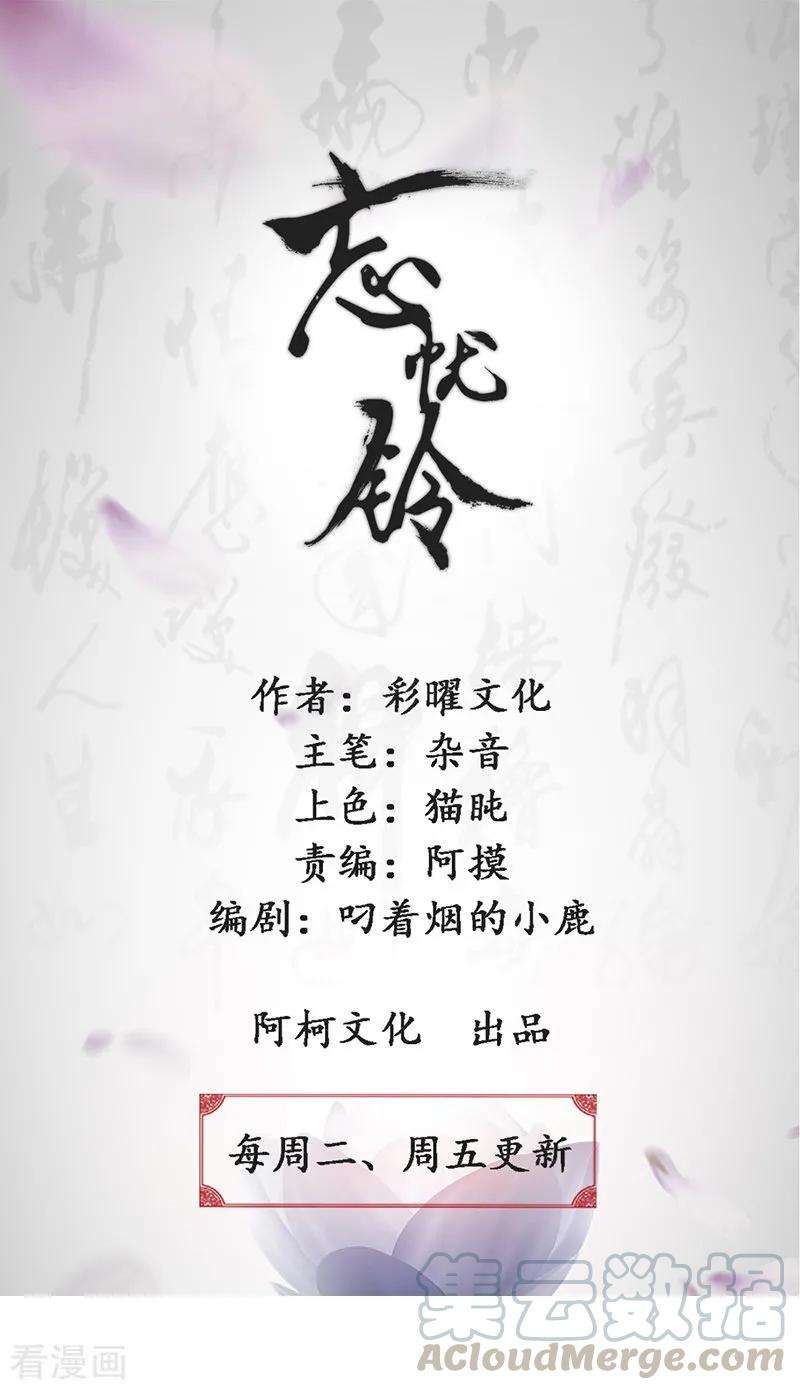 忘忧铃
作者：彩曜文化
主笔：杂音
上色：猫盹
责编：阿摸
编剧：叼着烟的小鹿
阿柯文化 出品
每周二、周五更新
集云数据
看漫画
ACloudMerge.com